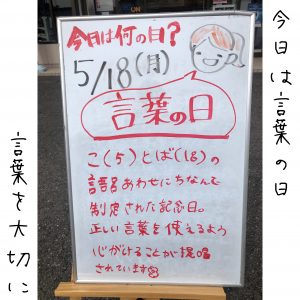 今日は言葉の日
今日は何の日?
5/18(月)
言葉の日
こ(5)とば(18)の
語呂あわせにちなんで
制定された記念日。
正しい言葉を使えるよう
心がけることが提唱
されています
言葉を大切に